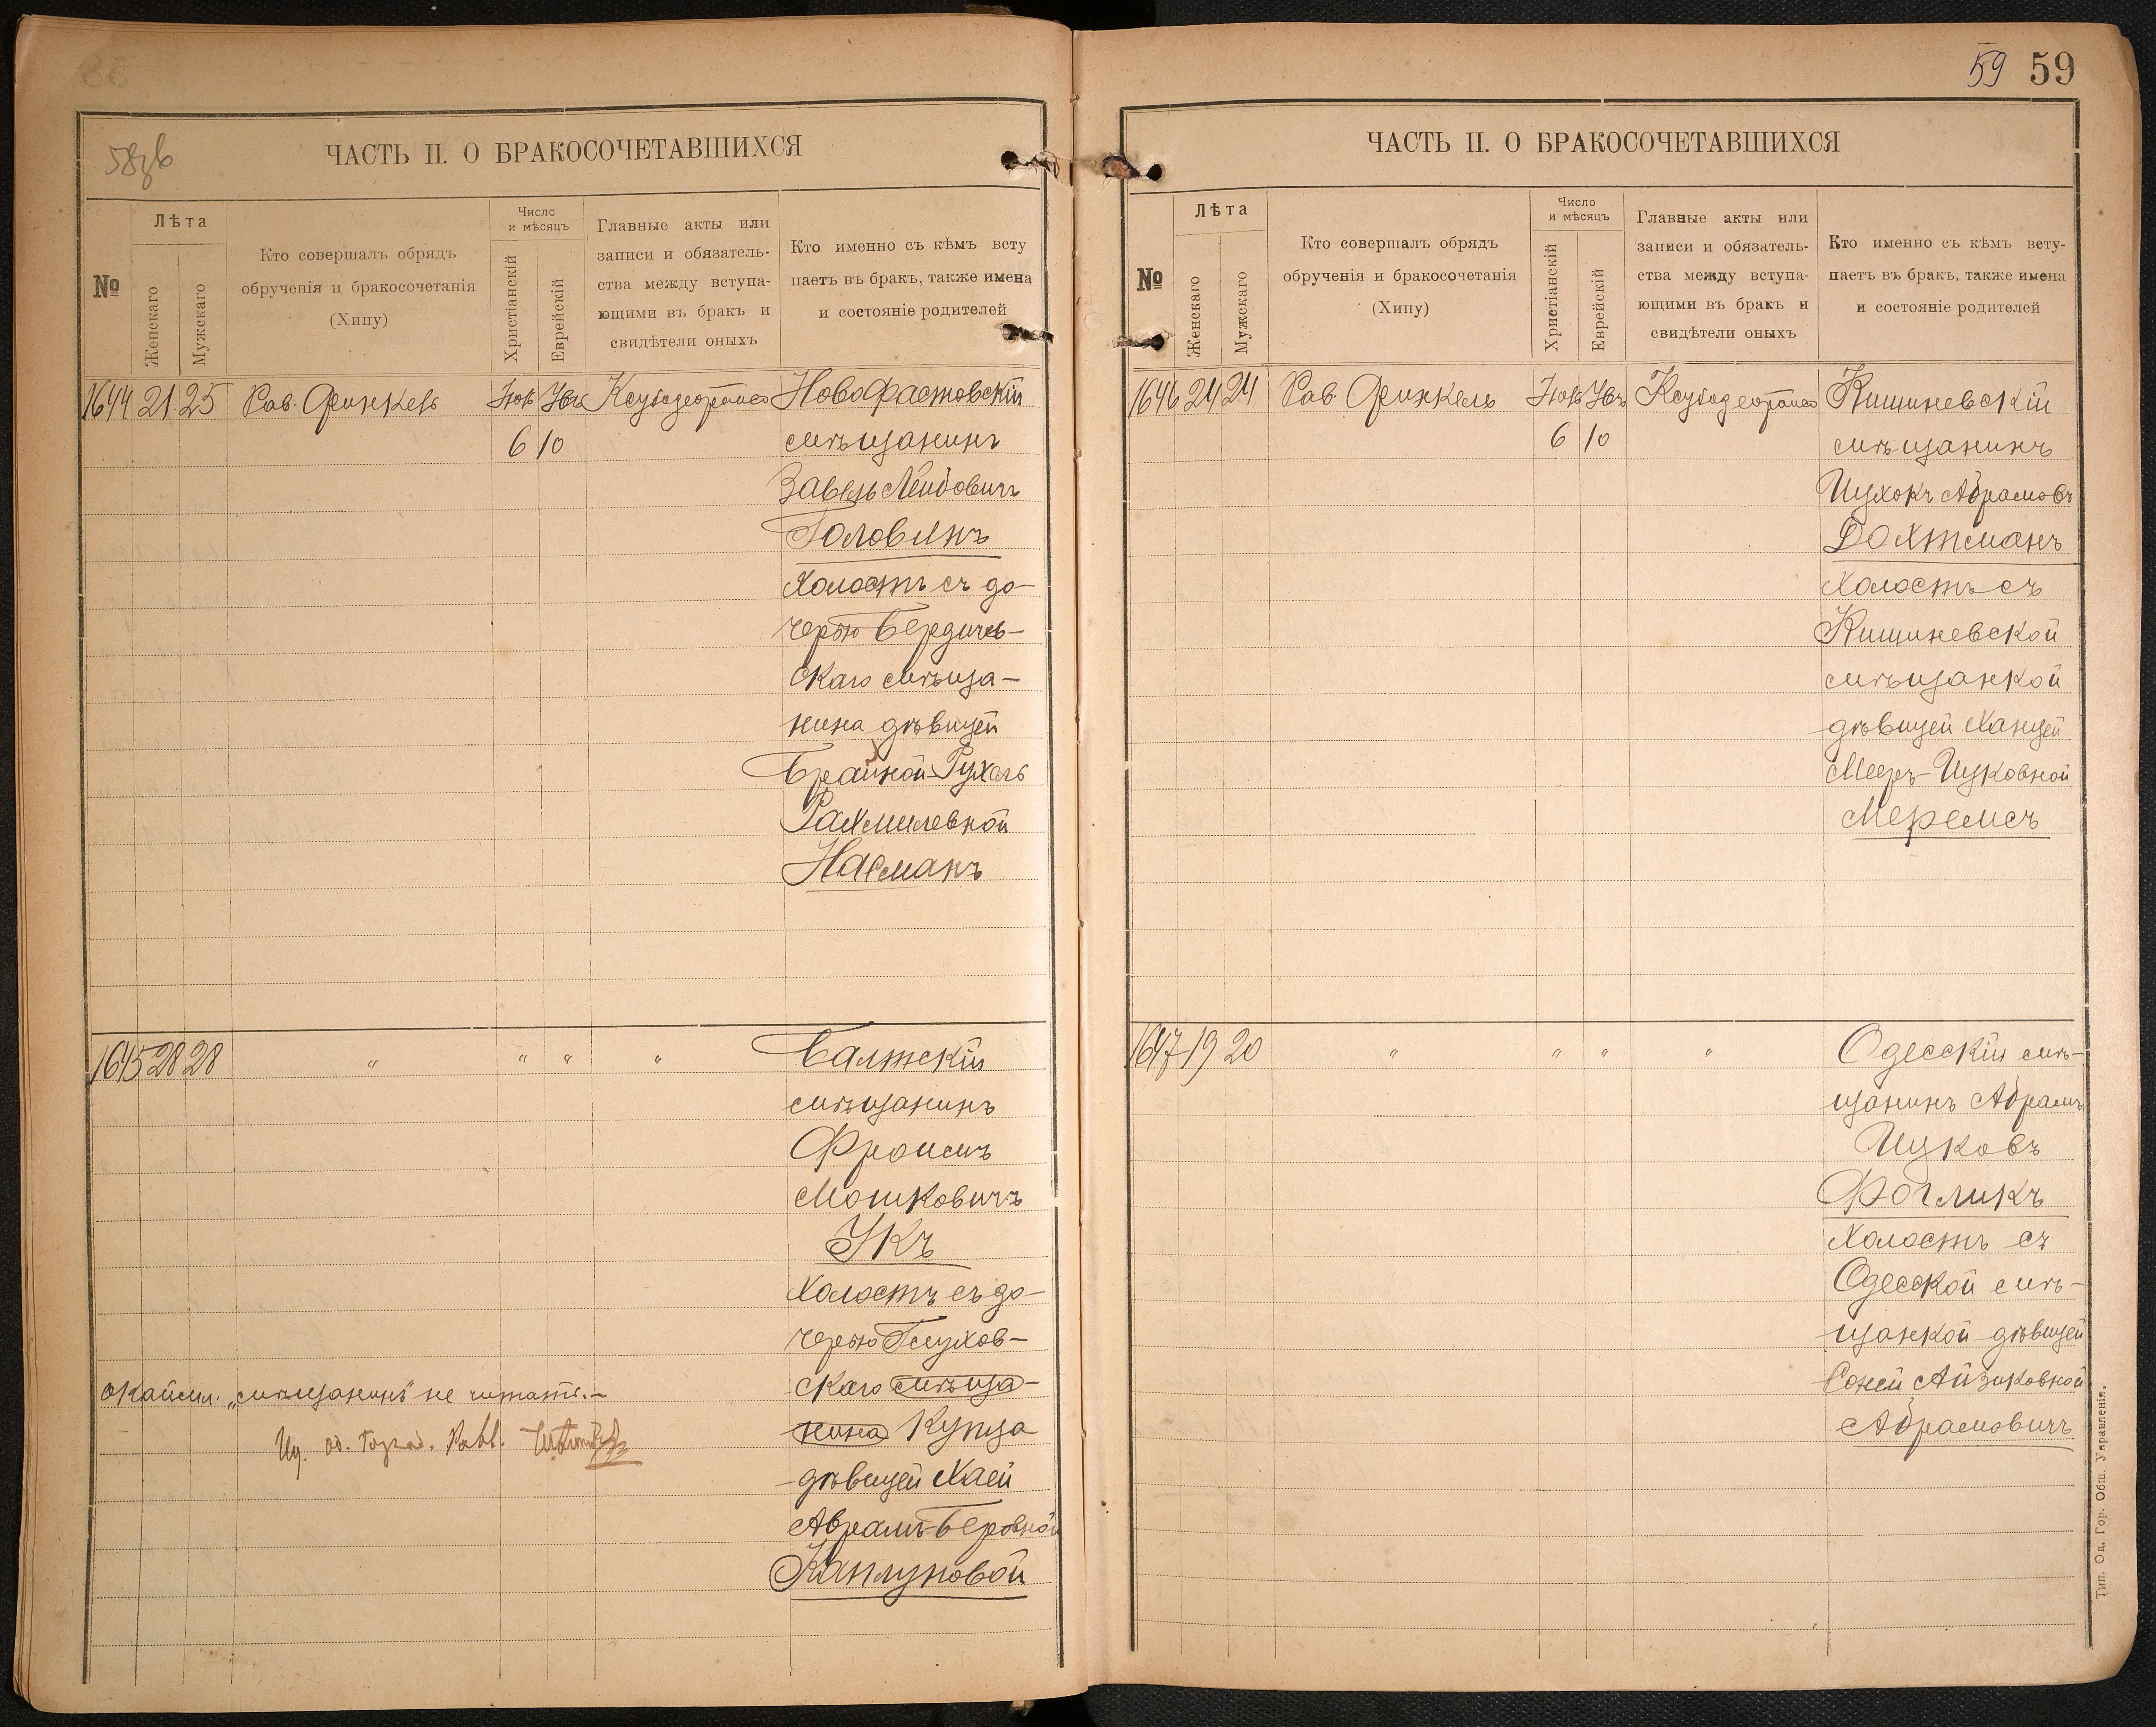 58зв
ЧАСТЬ II. О БРАКОСОЧЕТАВШИХСЯ
№
Лѣта
Женскаго
Мужскаго
Кто совершалъ обрядъ
обрученія и бракосочетанія
(Хипу)
Число
и мѣсяцъ
Христіанскій
Еврейскій
Главные акты или
записи и обязатель-
ства между вступа-
ющими въ бракъ и
свидѣтели оныхъ
Кто именно съ кѣмъ всту
паетъ въ бракъ, также имена
и состояніе родителей
1644 21 25 Рав. Финкель Нов
6 10
Новофастовскій
мѣщанинъ
Завель Лейбовичъ
Головинъ
холостъ съ до-
черью Бердичев-
скаго мѣща-
нина дѣвицей
Брайной-Рухель
Рахмилевной
Насманъ
1645 28 28 " " " "
Балтскій
мѣщанинъ
Фроимъ
Мошковичъ
Укъ
Холостъ съ до-
черью Глухов-
скаго мѣща-
нина Купца
дѣвицей Хаей
Аврамъ-Беровной
Каплуновой
окаймл. „мѣщанинъ" не читать.-
59 59
ЧАСТЬ II. О БРАКОСОЧЕТАВШИХСЯ
№
Лѣта
Женскаго
Мужскаго
Кто совершалъ обрядъ
обрученія и бракосочетанія
(Хипу)
Число
и мѣсяцъ
Христіанскій
Еврейскій
Главные акты или
записи и обязатель-
ства между вступа-
ющими въ бракъ и
свидѣтели оныхъ
Кто именно съ кѣмъ всту-
паетъ въ бракъ, также имена
и состояніе родителей
1646 24 24 Рав. Финкель Нов
6 10
Кишиневскій
мѣщанинъ
Ицхокъ Абрамовъ
Вохтманъ
Холостъ съ
Кишиневской
мѣщанкой
дѣвицей Ханцей
Мееръ-Ицковной
Меремсъ
1647 19 20 " " " "
Одесскій мѣ-
щанинъ Абрамъ
Ицковъ
Фогликъ
Холостъ съ
Одесской мѣ-
щанкой дѣвицей
Соней Айзиковной
Абрамовичъ
Тип. Од. Гор. Общ. Управленія.